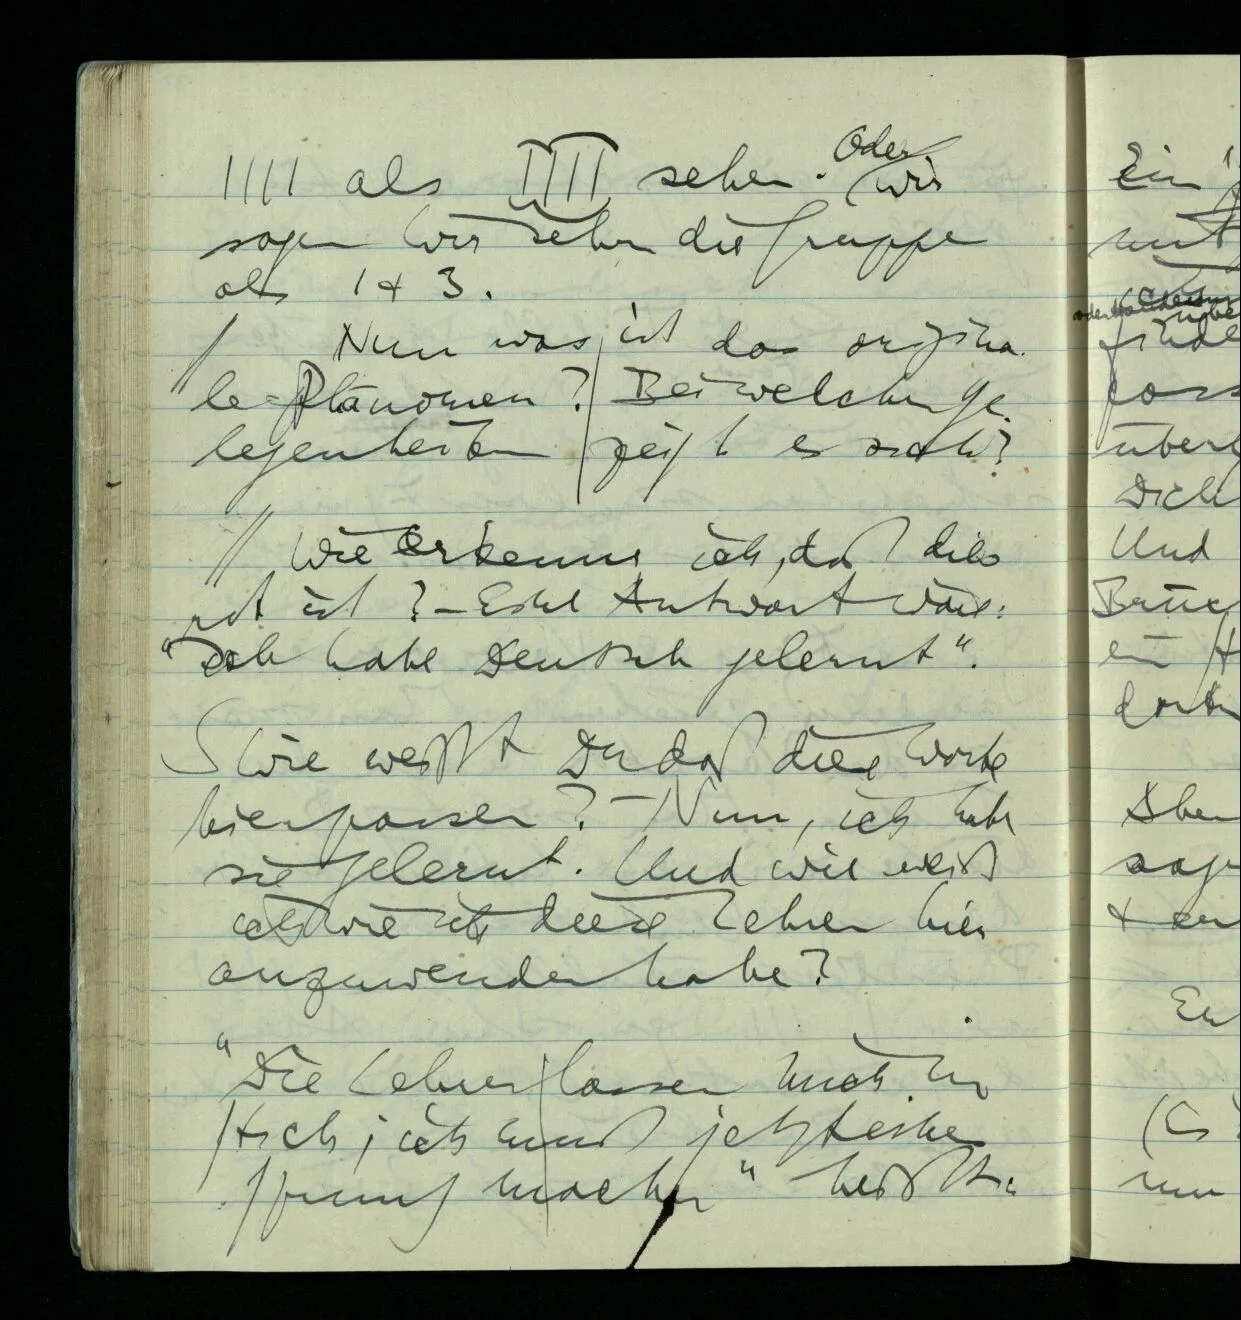 IIII als IIII sehen. Oder wir
sagen wir sehen die Gruppe
als 1 + 3.
/ Nun was ist das origina-
le Phänomen? Bei welchen Ge-
legenheiten zeigt es sich?
// Wie erkenne ich, daß dies
rot ist? – Eine Antwort wäre:
"Ich habe Deutsch gelernt".
S Wie weißt Du daß diese Worte
hier passen? – Nun, ich habe
sie gelernt. Und wie weiß
ich wie ich diese Lehren hier
anzuwenden habe?
"Die Lehren lassen mich im
Stich; ich muß jetzt einen
Sprung machen"
Ein
mit
über
Dich
Und
ein
Aber